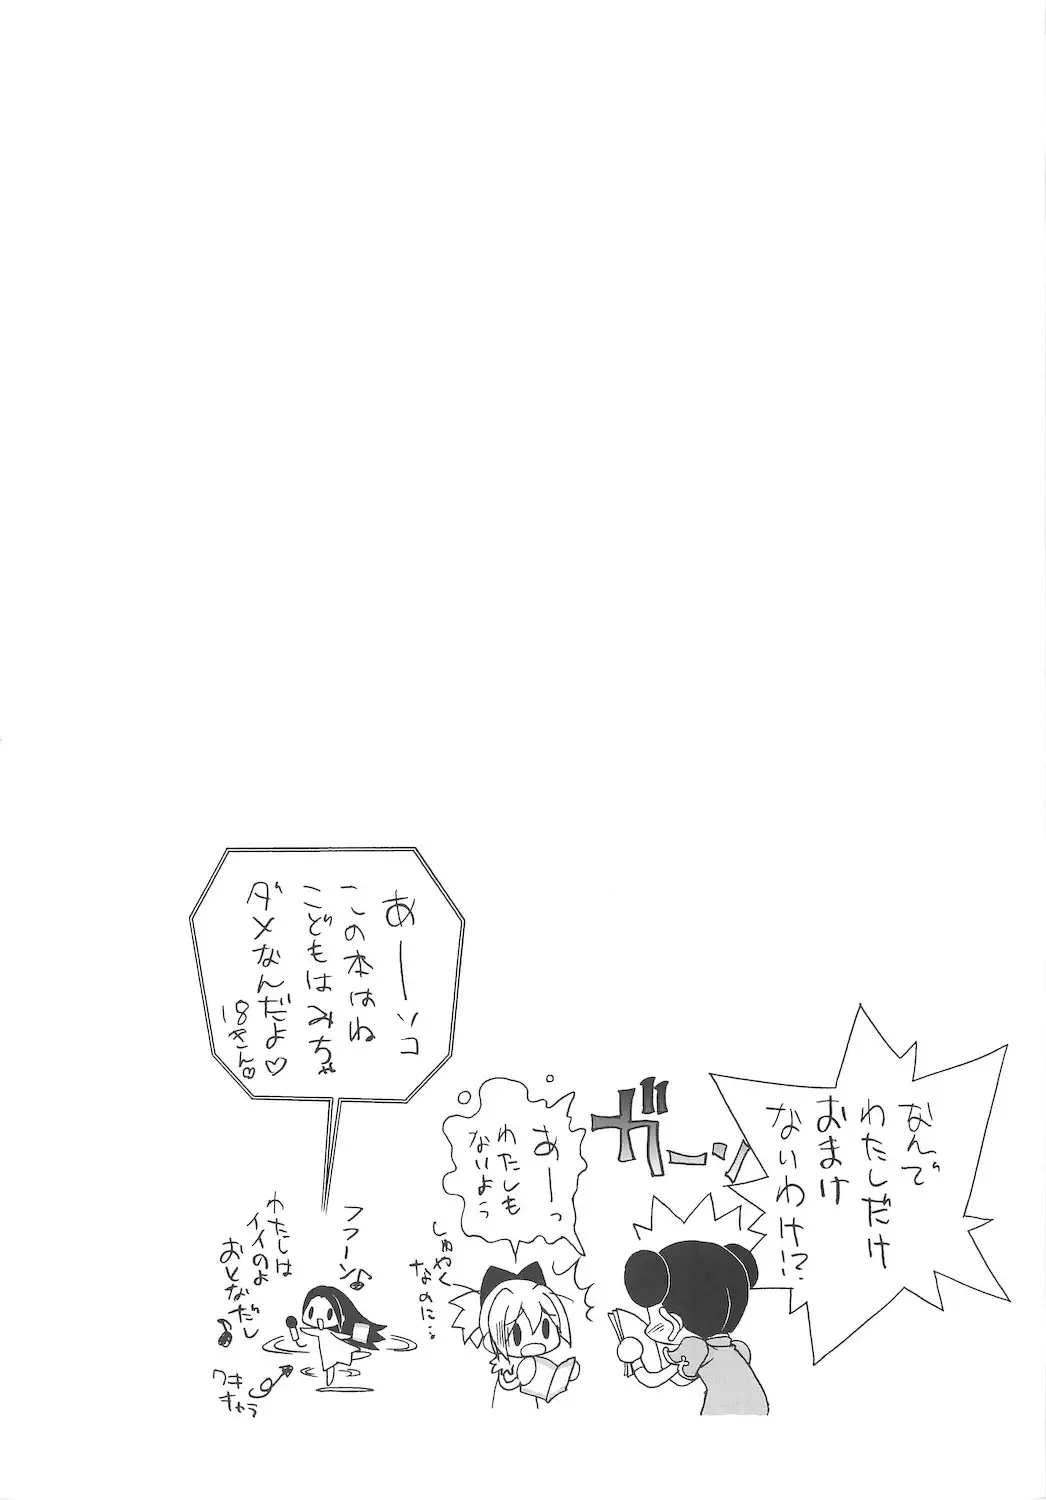 なんで
わたしだけ
おまけ
ないわけ!?
ガーン
あーっ
わたしも
ないよう
しゅやく
なのに…
あーソコ
この本はね
こどもはみちゃ
ダメなんだよ♡
18きん♡
フフーン♪
わたしは
イイのよ
おとなだし♪
ワキ
キャラ